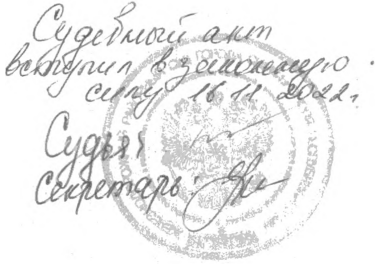 Судебный акт
вступил в законную
силу 16 11 2022г.
Судья:
Секретарь: